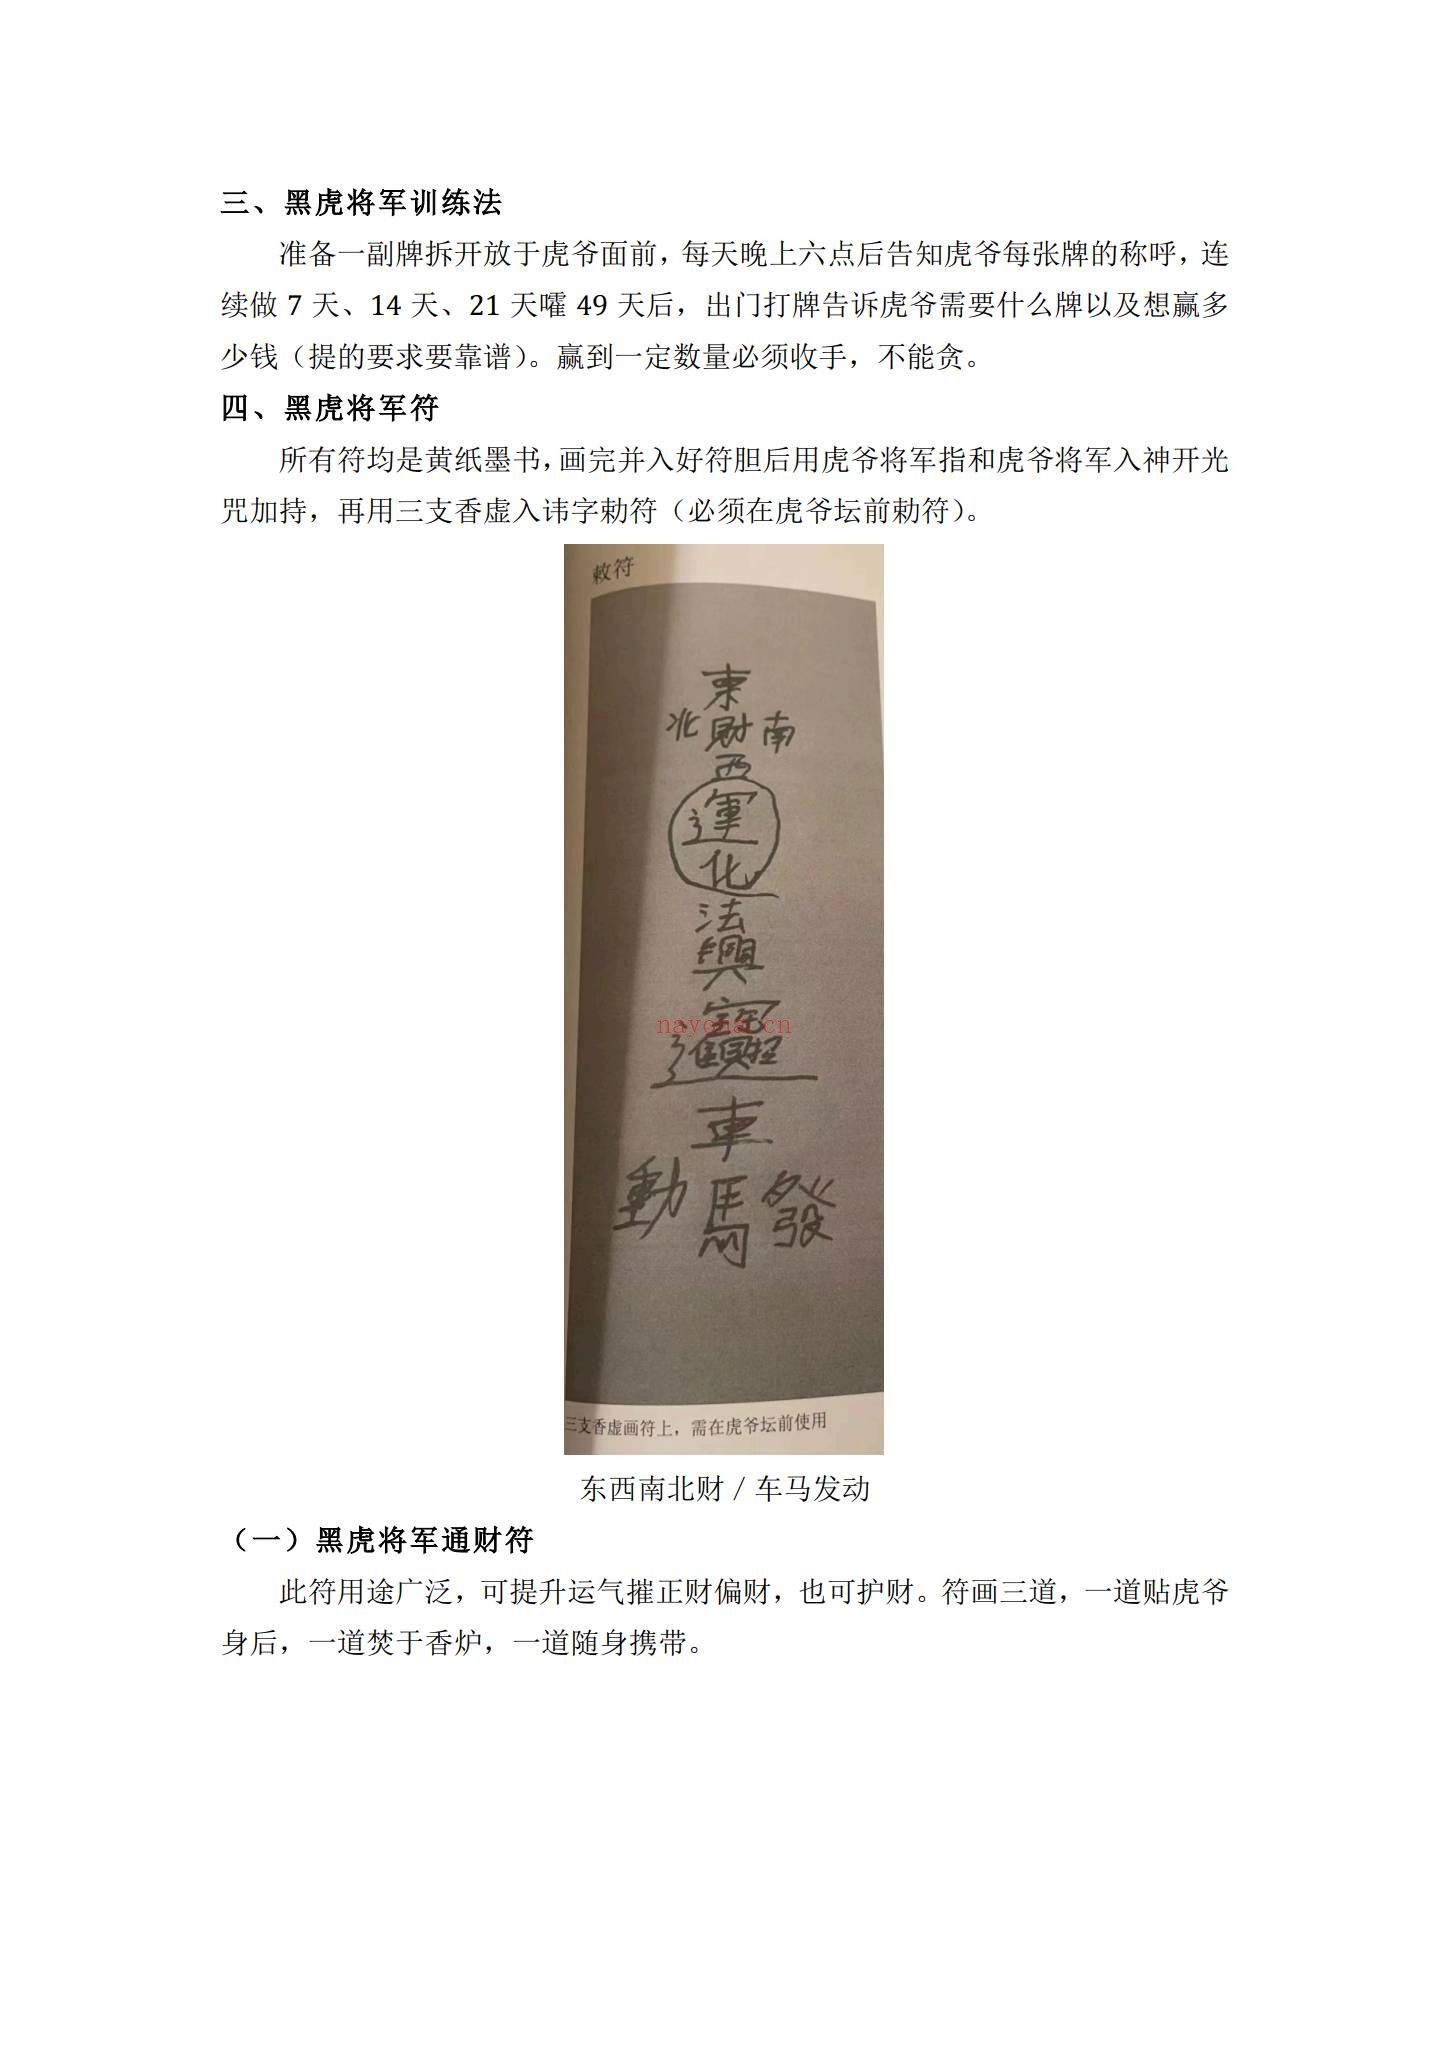 三、黑虎将军训练法
准备一副牌拆开放于虎爷面前，每天晚上六点后告知虎爷每张牌的称呼，连
续做 7 天、14 天、21 天嚯 49 天后，出门打牌告诉虎爷需要什么牌以及想赢多
少钱（提的要求要靠谱）。赢到一定数量必须收手，不能贪。
四、黑虎将军符
所有符均是黄纸墨书，画完并入好符胆后用虎爷将军指和虎爷将军入神开光
咒加持，再用三支香虚入讳字勅符（必须在虎爷坛前勅符）。
敕符
東
北財南
西
運
化
法
興
nayona.cn
車
動馬發
三支香虚画符上，需在虎爷坛前使用
东西南北财 / 车马发动
（一）黑虎将军通财符
此符用途广泛，可提升运气摧正财偏财，也可护财。符画三道，一道贴虎爷
身后，一道焚于香炉，一道随身携带。